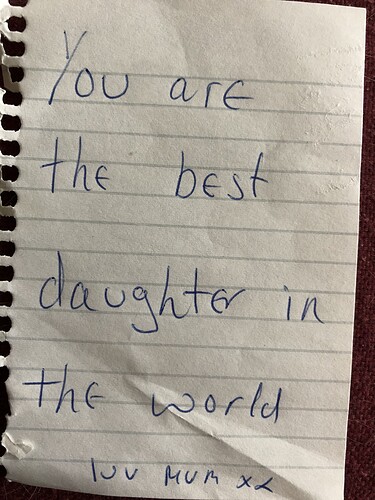 You are
the best
daughter in
the world
luv MUM xx